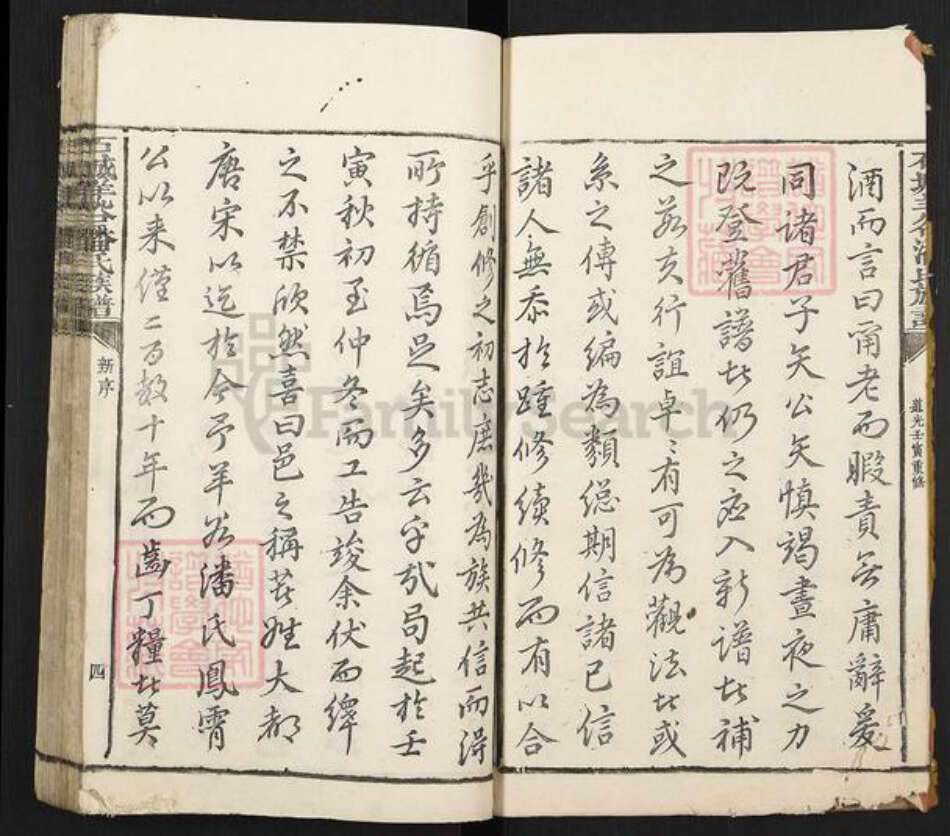 道光壬寅重修
酒而言曰甯老而暇責無庸辭爰
同諸君子矢公矢慎竭晝夜之力
既登舊譜者仍之應入新譜者補
之若夫行誼卓々有可為觀法者或
系之傳或編為類總期信諸已信
諸人無忝於踵修續修而有以合
乎創修之初志庶幾為族共信而得
所持循焉足矣多云乎哉局起於壬
寅秋初至仲冬而工告竣余伏而繹
之不禁欣然喜曰邑之稱著姓大都
唐宋以迄於今予羊谷潘氏鳳霄
公以来僅二百数十年而齒丁糧者莫
石城羊谷潘氏族譜
新序
四
FamilySearch